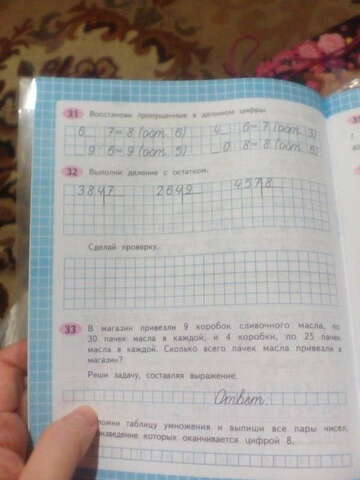 31 Восстанови пропущенные в делимом цифры.
6 7=8 (ост. 6) 4 6=7 (ост. 3)
9 6=9 (ост. 5) 0 8=8 (ост. 6)
32 Выполни деление с остатком.
3847 2649 4578
Сделай проверку.
33 В магазин привезли 9 коробок сливочного масла, по
30 пачек масла в каждой, и 4 коробки, по 25 пачек
масла в каждой. Сколько всего пачек масла привезли в
магазин?
Реши задачу, составляя выражение.
Ответ:
таблицу умножения и выпиши все пары чисел,
произведение которых оканчивается цифрой 8.